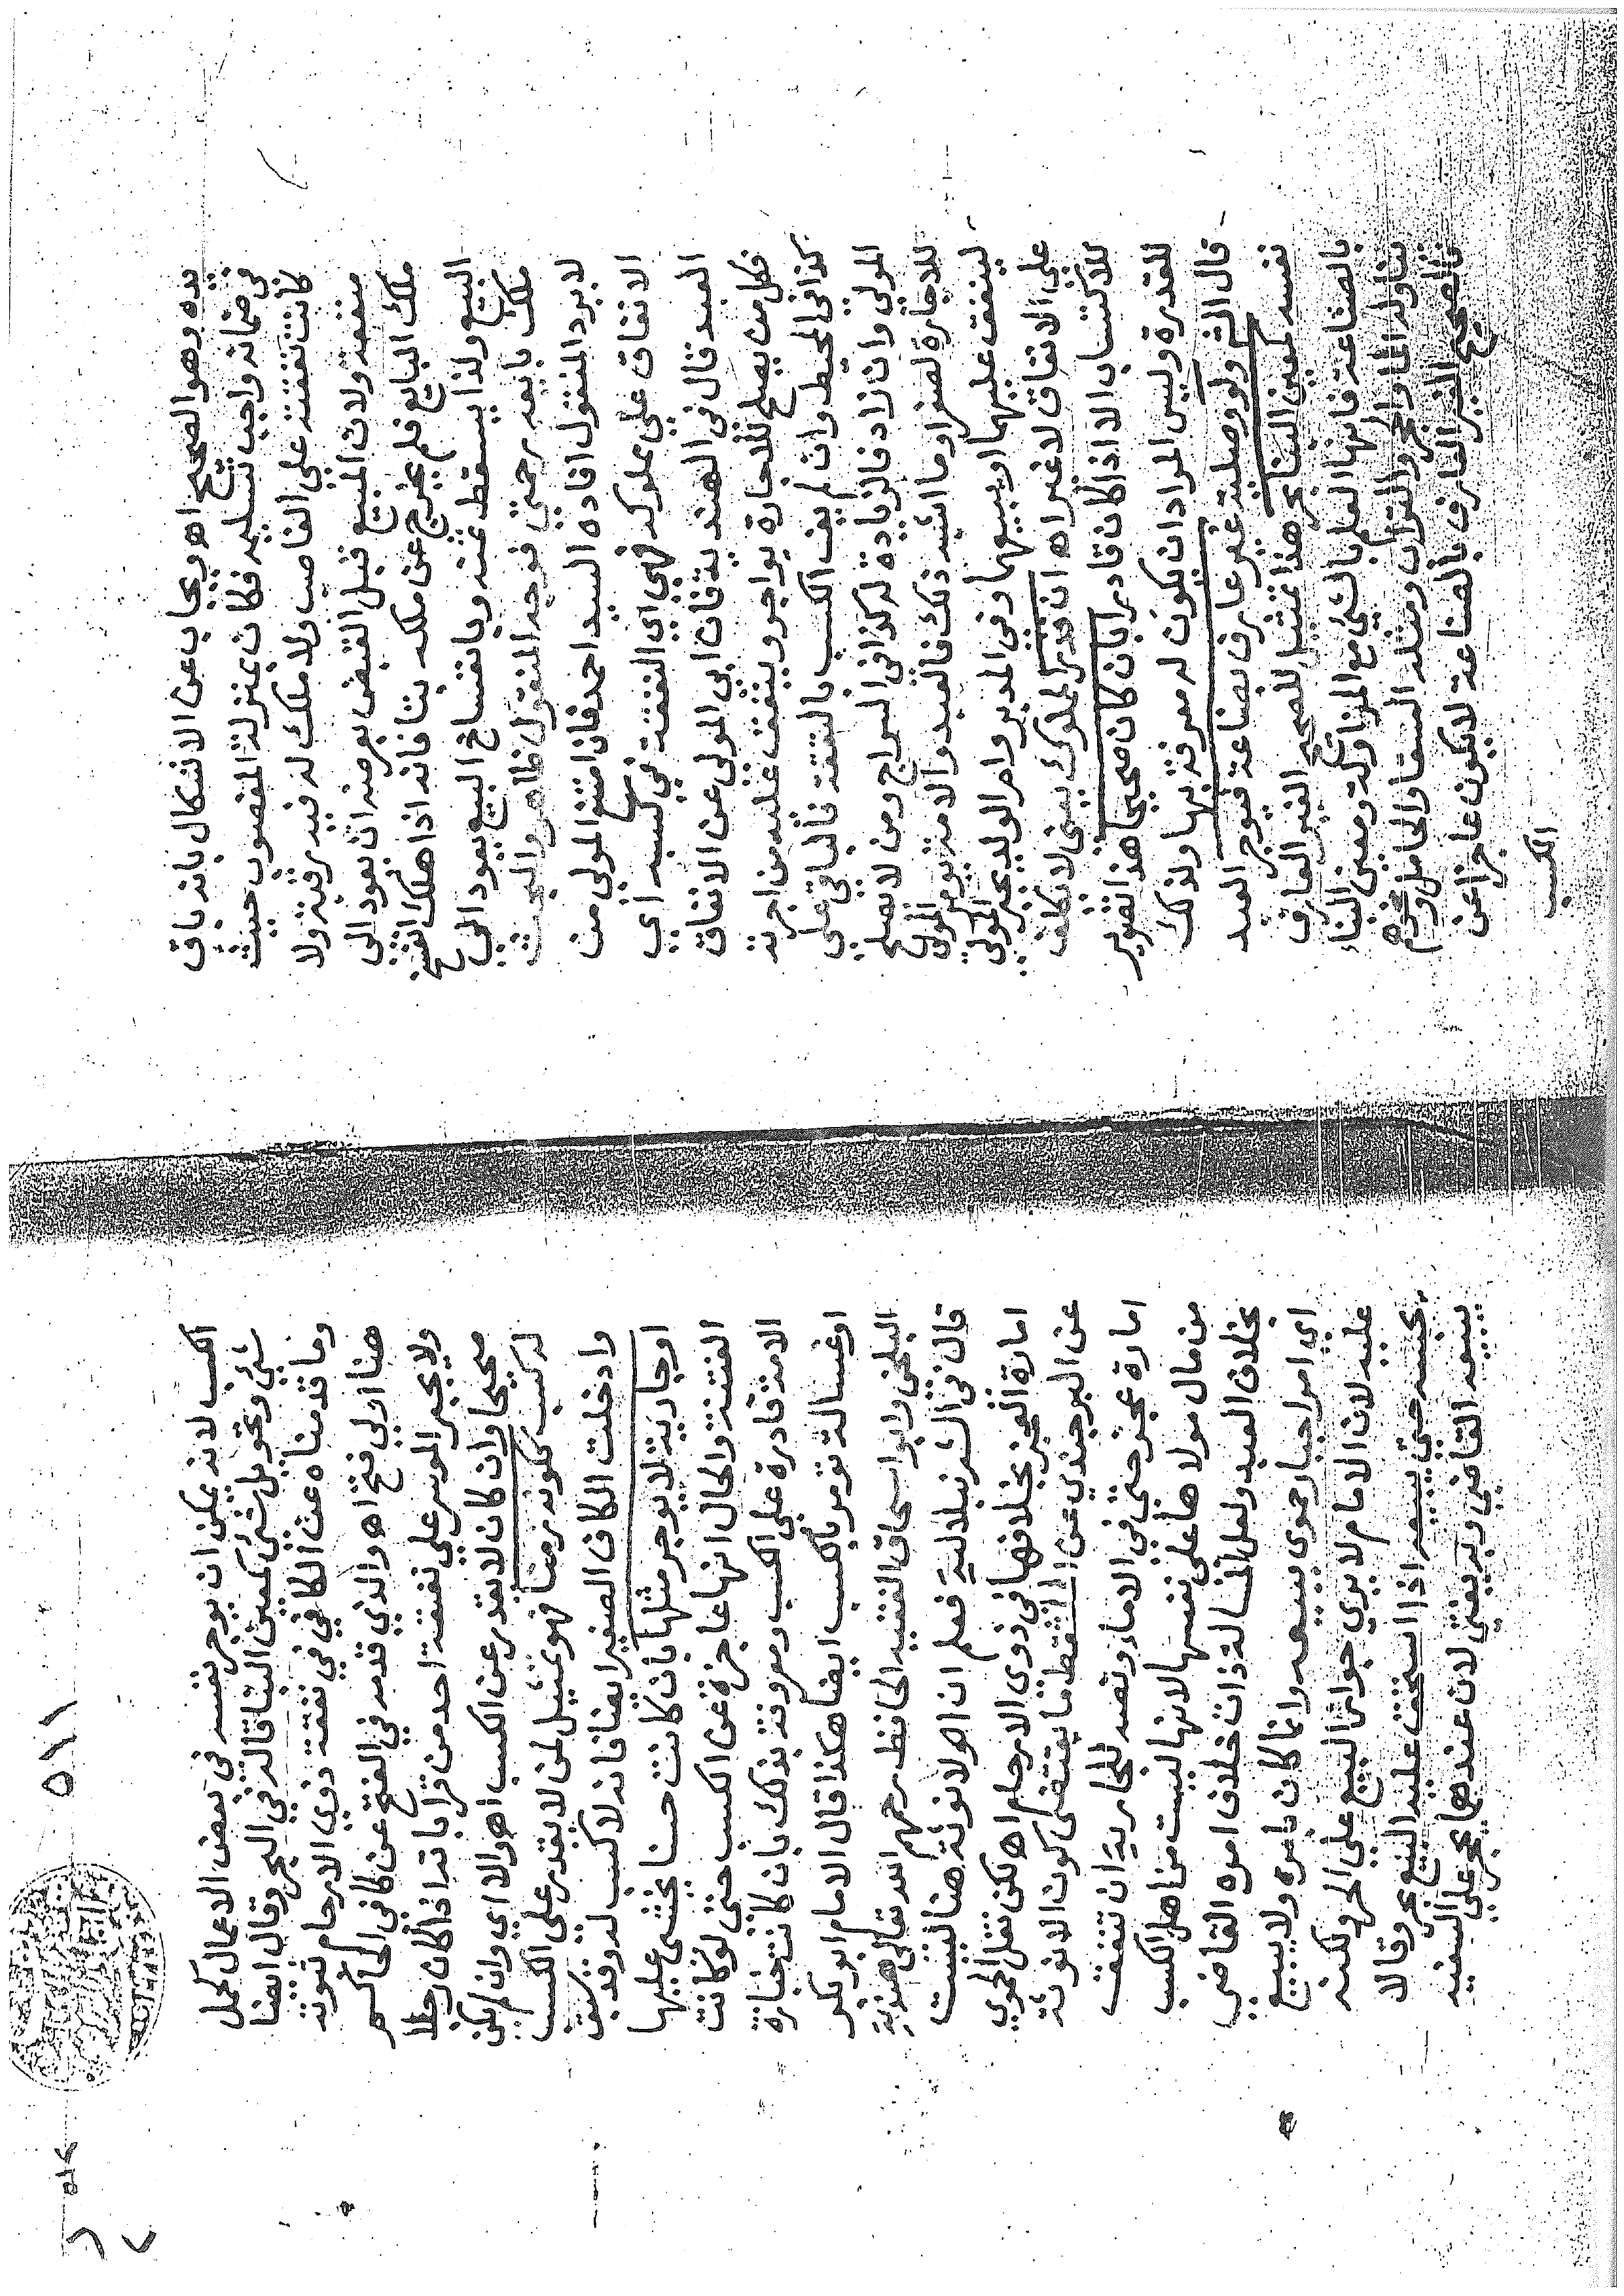 يده وهو الصحيح اه ويجاب عن الاشكال بانه باق
في ضمانه واجب تسليمه فكان بمنزلة المغصوب حيث
كانت نفقته على الغاصب ولا ملك له فيه رقبة ولا
منفعة ولان المبيع قبل القبض بعرضة ان يعود الى
ملك البايع فلم يخرج عن ملكه بتا فانه اذا هلك انفسخ
البيع ولذا يسقط ثمنه وبانفساخ البيع يعود الى
ملك بايعه رحمتي فوجه المنقول ظاهر والبحث
لا يرد المنقول افاده السيد احمد فان امتنع المولى من
الانفاق على مملوكه فهي اي النفقة في كسبه اي
العبد قال في الهندية فان ابى المولى عن الانفاق
فكل من يصلح للاجارة يواجر وينفق عليه من اجرته
كذا في المحيط وان لم يف الكسب بالنفقة فالباقي على
المولى وان زاد فالزيادة له كذا في السراج ومن لا يصلح
للاجارة لصغر او ما اشبه ذلك فالعبد والامة يومر المولى
لينفق عليهما او يبيعهما وفي المدبر وام الولد يجبر المولى
على الانفاق لا غير اه ان قدر المملوك يعني لا يكلف
للاكتساب الا اذا كان قادرا بان كان صحيحا هذا تصوير
للقدرة وليس المراد ان يكون له معرفة بها ولذلك
قال الش ولو وصلية غير عارف بصناعة فيوجر العبد
نفسه كمعين البنا بحر هذا تمثيل للصحيح الغير العارف
بالصناعة فانها العلم بالشي مع المزاولة ومعين البناء
يناوله الماء والحجر والتراب ومثله السقا والحامل ونحوهم
فالصحيح الغير العارف بالصناعة لا يكون عاجزا عن
الكسب
٥١١
الكسب لانه يمكن ان يوجر نفسه في بعض الاعمال كحمل
شي وتحويل شي كمعين البنا قاله في البحر وقال ايضا
وما قدمناه عن الكافي في نفقة ذوي الارحام ثبوته
هنا اولى فتح اه والذي قدمه في الفتح عن كافي الحاكم
ولا يجبر الموسر على نفقة احد من قراباته اذا كان رجلا
صحيحا وان كان لا يقدر عن الكسب اه والا اي وان لم يكن
له كسب ككونه زمنا فهو تمثيل لمن لا يقدر على الكسب
وادخلت الكاف الصغير ايضا فانه لا كسب له وقد سبق
او جارية لا يوجر مثلها بان كانت حسنا يخشى عليها
الفتنة والحال انها عاجزة عن الكسب حتى لو كانت
الامة قادرة على الكسب ومعروفة بذلك بان كانت خبازة
او غسالة تومر بالكسب ايضا هكذا قال الامام ابو بكر
البلخي وابو اسحاق الفقيه الحافظ رحمهم الله تعالى هندية
قال في الشرنبلالية فعلم ان الانوثة هنا ليست
امارة العجز بخلافها في ذوي الارحام اه لكن نقل الحموي
عن البرجندي عن الملتقط ما يقتضي كون الانوثة
امارة عجز حتى في الاماء وقصد للجارية ان تنفق
من مال مولاها على نفسها لانها ليست من اهل الكسب
بخلاف العبد ولعل المسالة ذات خلاف امره القاضي
اي امر اجبار حموي ببيعه وانما كان يامره ولا يبيع
عليه لان الامام لا يرى جواز البيع على الحر ولكنه
يحبسه حتى يبيعه اذا استحق عليه البيع بحر وقالا
يبيعه القاضي وبه يفتى لان عندهما يحجر على السفيه